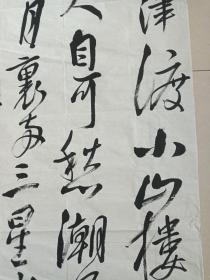 津渡小山樓
人自可愁潮
月裏兩三星